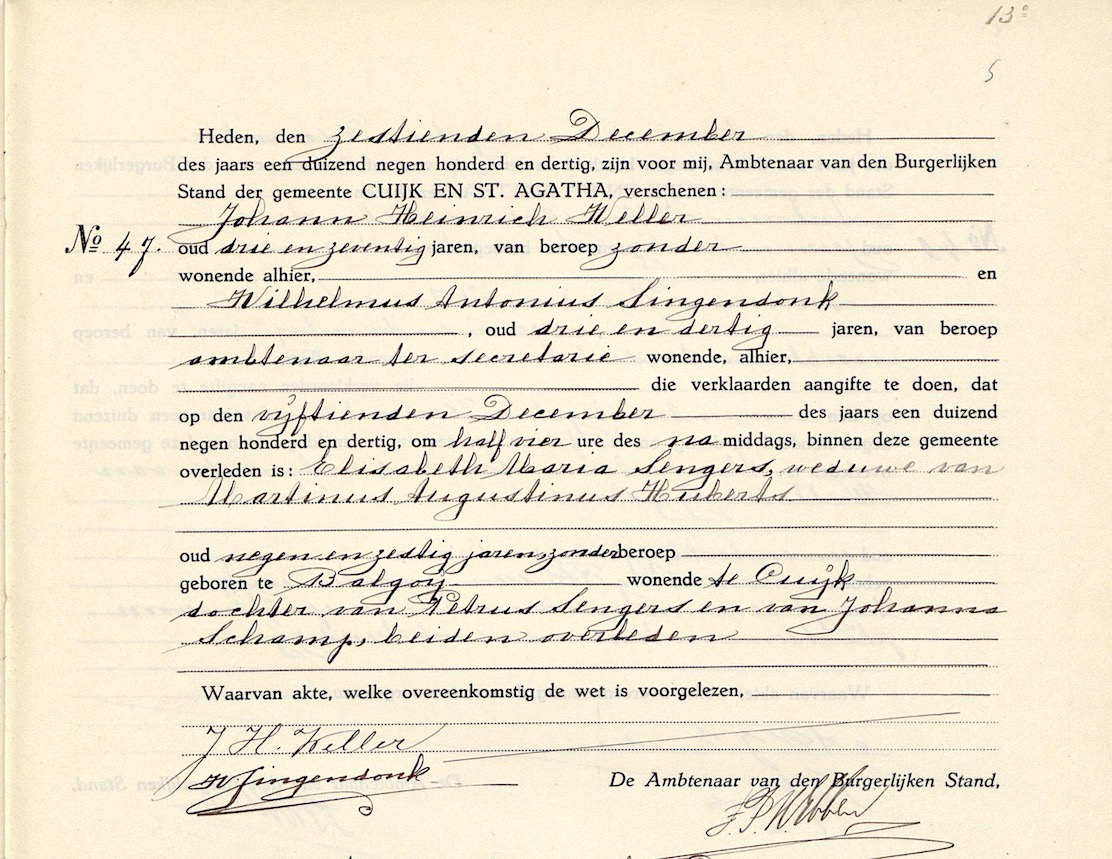 13
5
Heden, den zestienden December
des jaars een duizend negen honderd en dertig, zijn voor mij, Ambtenaar van den Burgerlijken
Stand der gemeente CUIJK EN ST. AGATHA, verschenen:
Johann Heinrich Weller
No 47. oud drie en zeventig jaren, van beroep zonder
wonende alhier, en
Wilhelmus Antonius Singendonk
, oud drie en dertig jaren, van beroep
ambtenaar ter secretarie wonende, alhier,
die verklaarden aangifte te doen, dat
op den vijftienden December des jaars een duizend
negen honderd en dertig, om half vier ure des na middags, binnen deze gemeente
overleden is: Elisabeth Maria Sengers, weduwe van
Martinus Augustinus Huberts
oud negen en zestig jaren, zonder beroep
geboren te Balgoij wonende te Cuijk
dochter van Petrus Sengers en van Johanna
Schamp, beiden overleden
Waarvan akte, welke overeenkomstig de wet is voorgelezen,
J H. Weller
W Singendonk
De Ambtenaar van den Burgerlijken Stand,